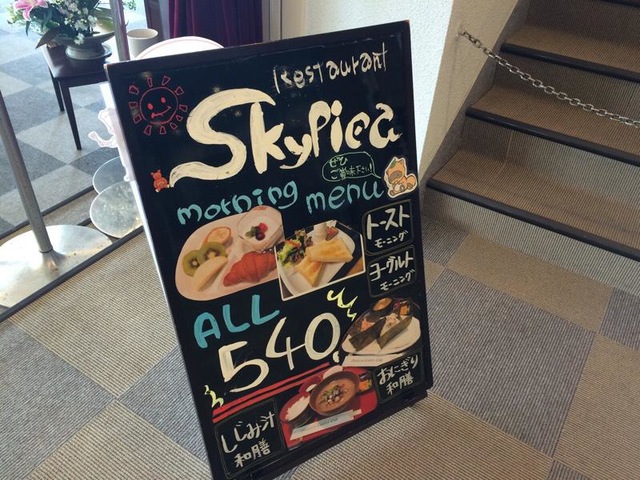 Restaurant
Skypiea
ぜひ
ご賞味下さい!
morning menu
トースト
モーニング
ヨーグルト
モーニング
ALL
540
おにぎり
和膳
しじみ汁
和膳